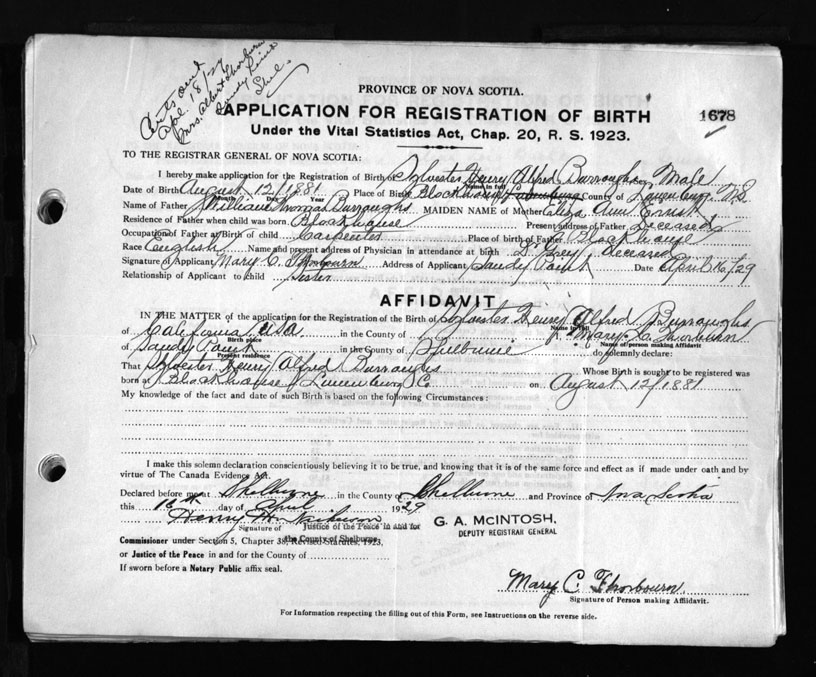 Certs out
Apl. 18/29
Mrs. Albert Thorburn
Sandy Point
Shel.
PROVINCE OF NOVA SCOTIA.
APPLICATION FOR REGISTRATION OF BIRTH
1678
Under the Vital Statistics Act, Chap. 20, R. S. 1923.
TO THE REGISTRAR GENERAL OF NOVA SCOTIA:
I hereby make application for the Registration of Birth of Sylvester Henry Alfred Burroughs, Male
Name in full
Date of Birth August 12/1881 Place of Birth Blockhouse County of Lunenburg NS
Month Day Year
Name of Father William Thomas Burroughs MAIDEN NAME of Mother Eliza Ann Ernst
Residence of Father when child was born Blockhouse Present address of Father Deceased
Occupation of Father at Birth of child Carpenter Place of birth of Father Blockhouse
Race English Name and present address of Physician in attendance at birth Deceased
Signature of Applicant Mary C. Thorbourn Address of Applicant Sandy Point Date April 16/29
Relationship of Applicant to child Sister
AFFIDAVIT
IN THE MATTER of the application for the Registration of the Birth of Sylvester Henry Alfred Burroughs
Name in full
of California USA in the County of I, Mary C. Thorburn
Birth place Name of person making Affidavit
of Sandy Point in the County of Shelburne do solemnly declare:
Present residence
That Sylvester Henry Alfred Burroughs Whose Birth is sought to be registered was
born at Blockhouse Lunenburg Co. on August 12/1881
My knowledge of the fact and date of such Birth is based on the following Circumstances:
I make this solemn declaration conscientiously believing it to be true, and knowing that it is of the same force and effect as if made under oath and by
virtue of The Canada Evidence Act.
Declared before me at Shelburne in the County of Shelburne and Province of Nova Scotia
this 16th day of April 1929
Henry H.
Signature of Justice of the Peace in and for
G. A. McINTOSH,
DEPUTY REGISTRAR GENERAL
the County of Shelburne
Commissioner under Section 5, Chapter 38, Revised Statutes, 1923,
or Justice of the Peace in and for the County of
If sworn before a Notary Public affix seal.
Mary C. Thorbourn
Signature of Person making Affidavit.
For Information respecting the filling out of this Form, see Instructions on the reverse side.